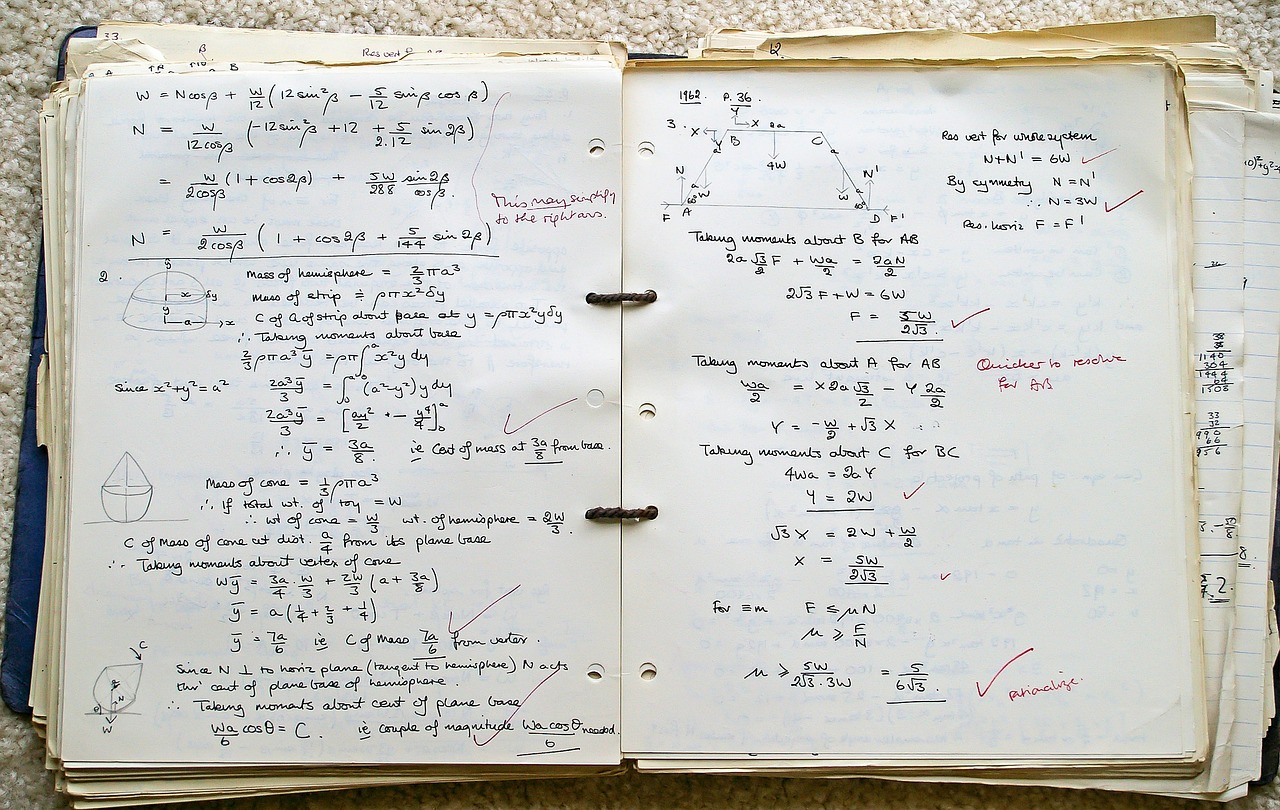 33.
β
Res vert
A B
W = Ncosβ + W/12 (12sin²β − 5/12 sinβ cosβ)
N = W/12cosβ (−12sin²β + 12 + 5/2.12 sin2β)
= W/2cosβ (1 + cos2β) + 5W/288 sin2β/cosβ.
This may simplify
to the right ans.
N = W/2cosβ (1 + cos2β + 5/144 sin2β)
2.
y
x δy
y
a x
Mass of hemisphere = 2/3 πa³
Mass of strip ≑ ρπx²δy
C of G of strip about base at y = ρπx²yδy
∴ Taking moments about base
2/3 ρπa³ȳ = ρπ∫₀ᵃ x²y dy
Since x²+y²=a² 2a³ȳ/3 = ∫₀ᵃ (a²−y²)y dy
2a³ȳ/3 = [ay²/2 − y⁴/4]₀ᵃ
∴ ȳ = 3a/8 ie Cent of mass at 3a/8 from base.
Mass of cone = 1/3 ρπa³
∴ If total wt. of toy = W
∴ wt of cone = W/3 wt. of hemisphere = 2W/3.
C of Mass of cone at dist. a/4 from its plane base
∴ Taking moments about vertex of cone
Wȳ = 3a/4 · W/3 + 2W/3 (a + 3a/8)
ȳ = a(1/4 + 2/3 + 1/4)
ȳ = 7a/6 ie C of Mass 7a/6 from vertex.
C
N
θ
W
Since N ⊥ to horiz plane (tangent to hemisphere) N acts
thro' cent of plane base of hemisphere.
∴ Taking moments about cent of plane base
Wa/6 cosθ = C. ie couple of magnitude Wa cosθ/6 needed.
12.
1962. P.36.
3.
Y
X X 2a
Y B C
a 4W a
N a a N'
W W
60° 60°
F A D F'
Res vert for whole system
N+N' = 6W
By symmetry N = N'
∴ N = 3W
Res. horiz F = F'
Taking moments about B for AB
2a √3/2 F + Wa/2 = 2aN/2
2√3 F + W = 6W
F = 5W/2√3.
Taking moments about A for AB
Quicker to resolve
for AB
Wa/2 = X 2a √3/2 − Y 2a/2
Y = −W/2 + √3 X
Taking moments about C for BC
4Wa = 2aY
Y = 2W
√3 X = 2W + W/2
X = 5W/2√3
For ≡m F ≤ μN
μ ≥ F/N
μ ≥ 5W/2√3.3W = 5/6√3.
rationalize.
38
38
1140
304
1444
64
1508
33
32
990
66
956